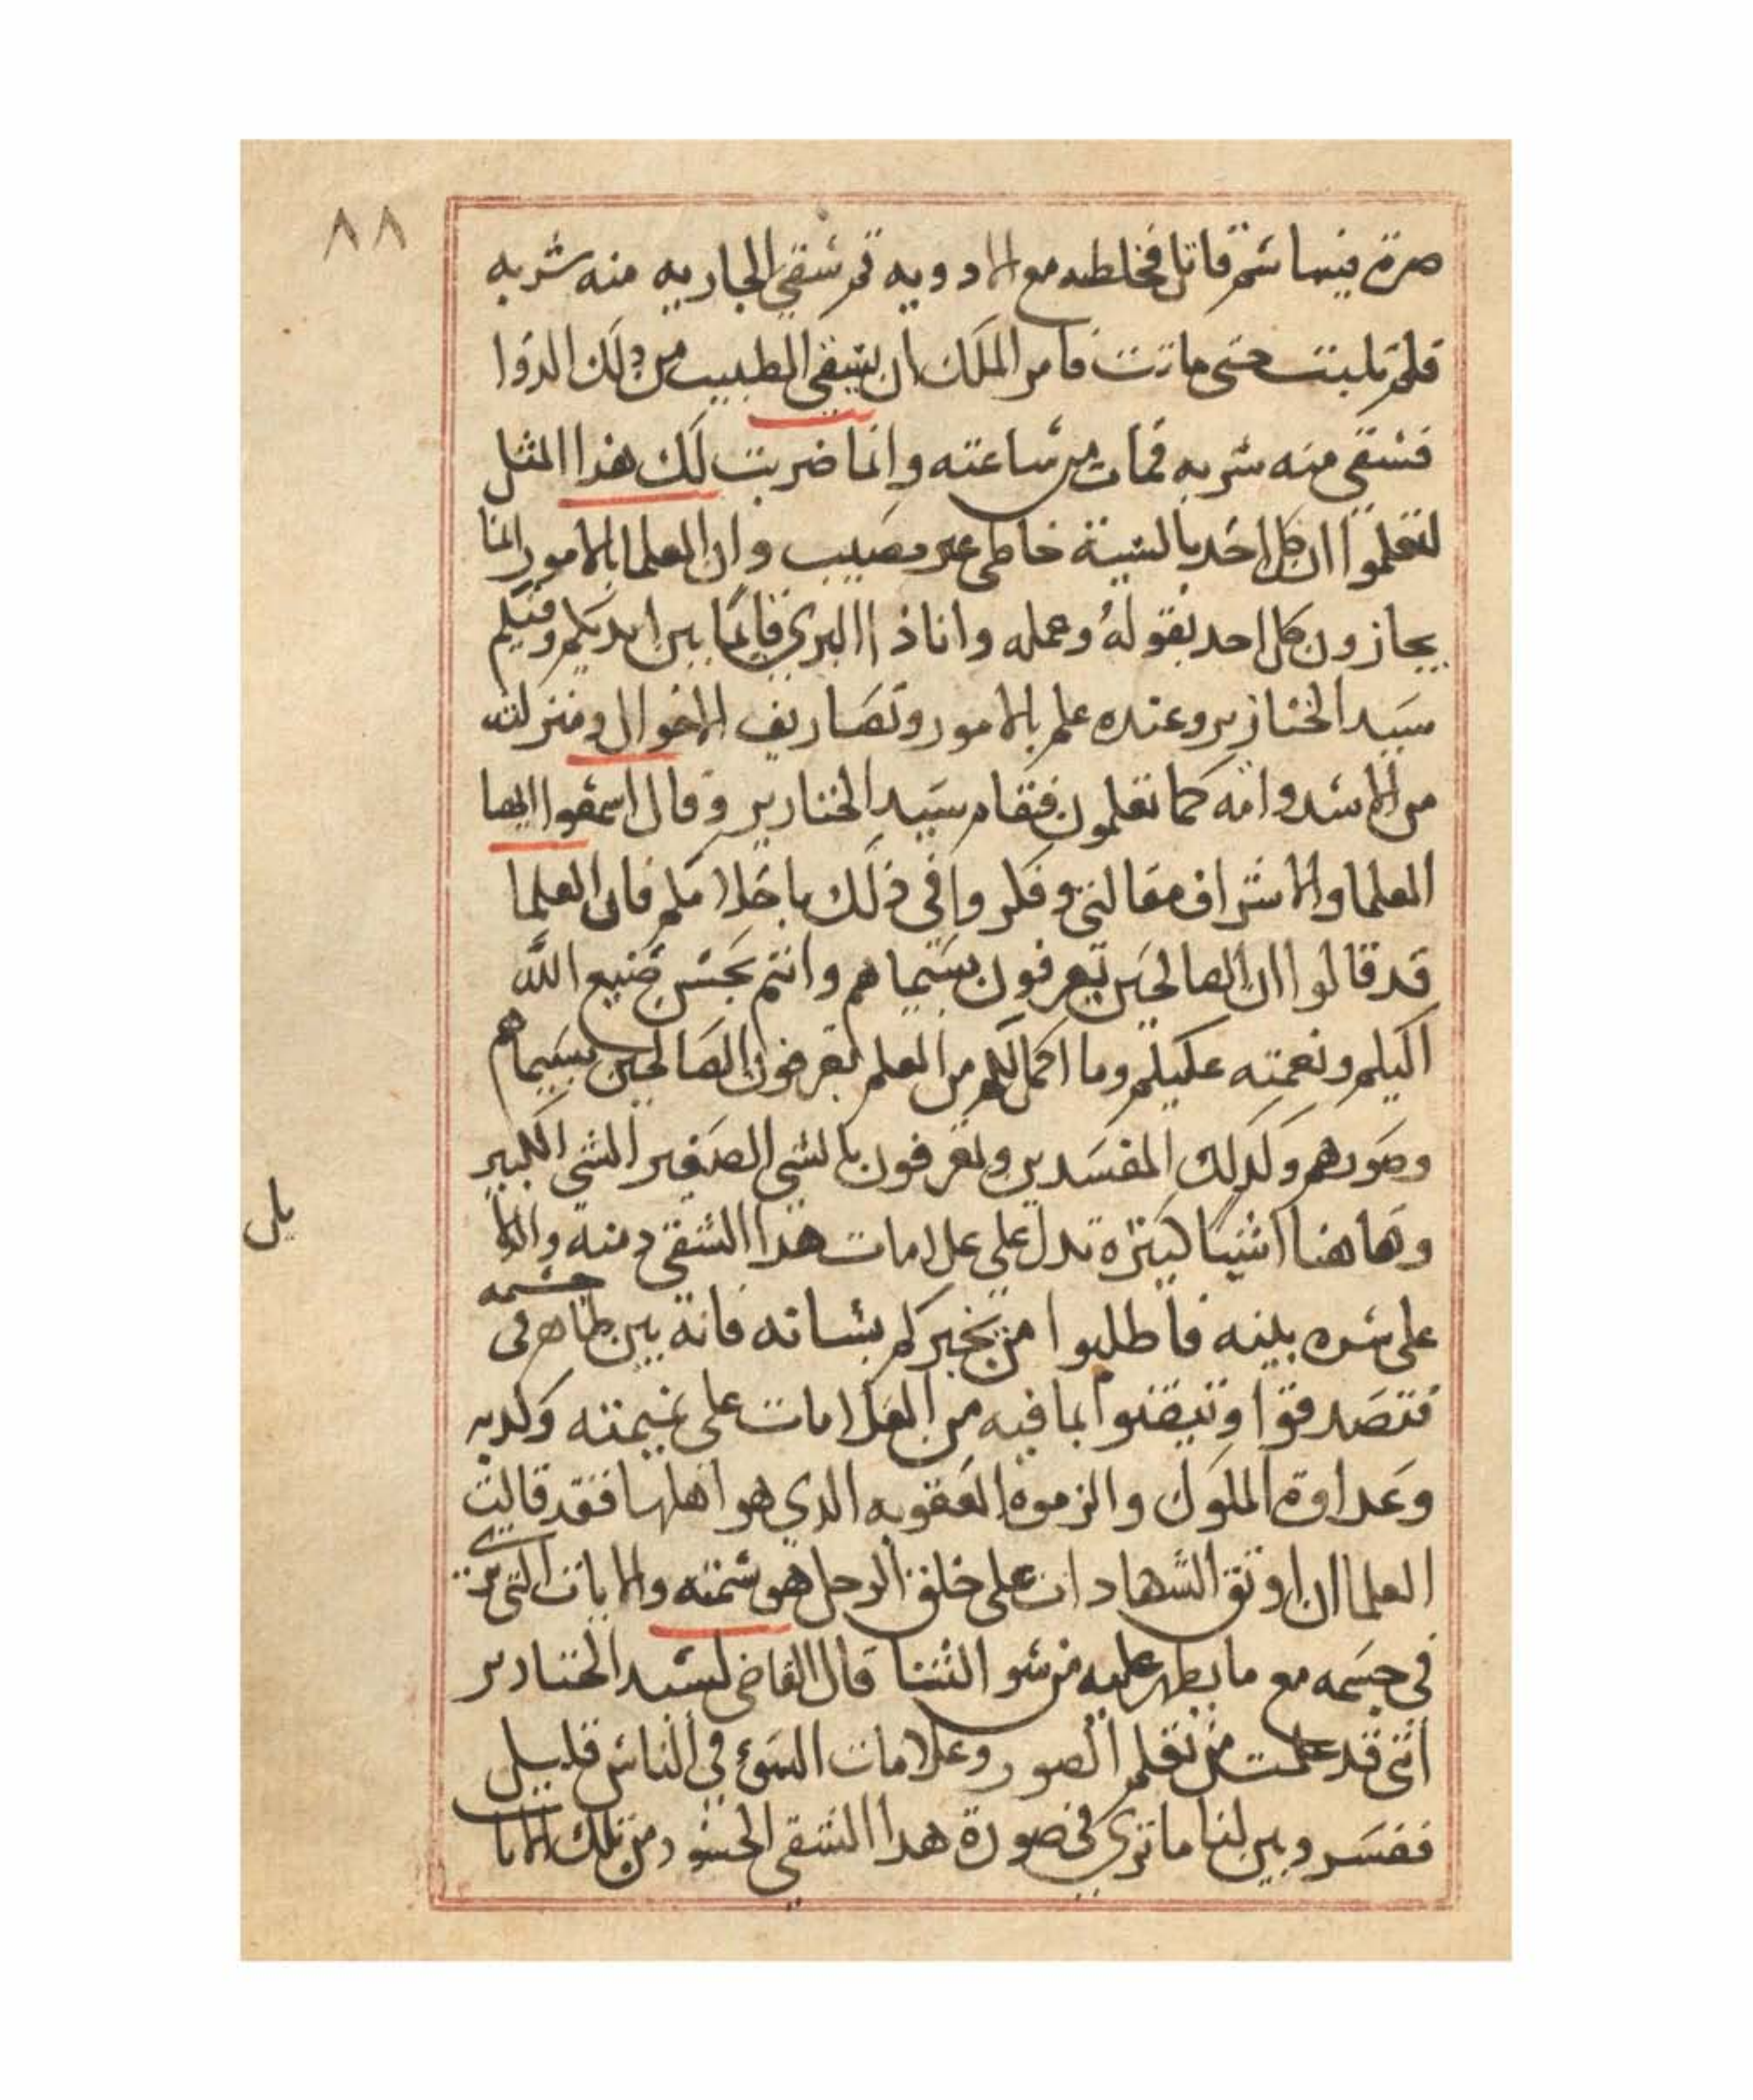 ٨٨
صرة فيها سم قاتل فخلطه مع الادويه ثم سقي الجاريه منه شربه
فلم تلبت حتى ماتت فامر الملك ان يسقي الطبيب من ذلك الدوا
فسقي منه شربه فمات من ساعته وانما ضربت لك هذا المثل
لتعلموا ان كل احد بالشبهة خاطي غير مصيب وان العلما بالامور انما
يجازون كل احد بقوله وعمله وانا ذا البري قايما بين ايديكم وفيكم
سيد الخنازير وعنده علم بالامور وتصاريف الاحوال ومنزلته
من الاسد وامه كما تعلمون فقام سيد الخنازير وقال اسمعوا ايها
العلما والاشراف مقالتي وفكروا في ذلك باحلامكم فان العلما
قد قالوا ان الصالحين يعرفون بسيماهم وانتم بحسن صنيع الله
اليكم ونعمته عليكم وما اكمل لكم من العلم تعرفون الصالحين بسيماهم
وصورهم وكذلك المفسدين وتعرفون بالشي الصغير الشي الكبير
وهاهنا اشيا كثيره تدل على علامات هذا الشقي دمنه والة
على شره بينه فاطلبوا من يخبركم بشانه فانه بين ظاهر في
جسمه
فتصدقوا وتيقنوا بما فيه من العلامات على نميمته وكدبه
وعداوة الملوك والزموه العقوبه الدي هو اهلها فقد قالت
العلما ان اوثق الشهادات على خلق الرجل هو سمته والايات التي
في جسمه مع ما يظهر عليه من سو الثنا قال القاضي لسيد الخنازير
انني قد علمت من تعلم الصور وعلامات السوء في الناس قليل
ففسر وبين لنا ما ترى في صورة هدا الشقي الحسود من تلك الايات